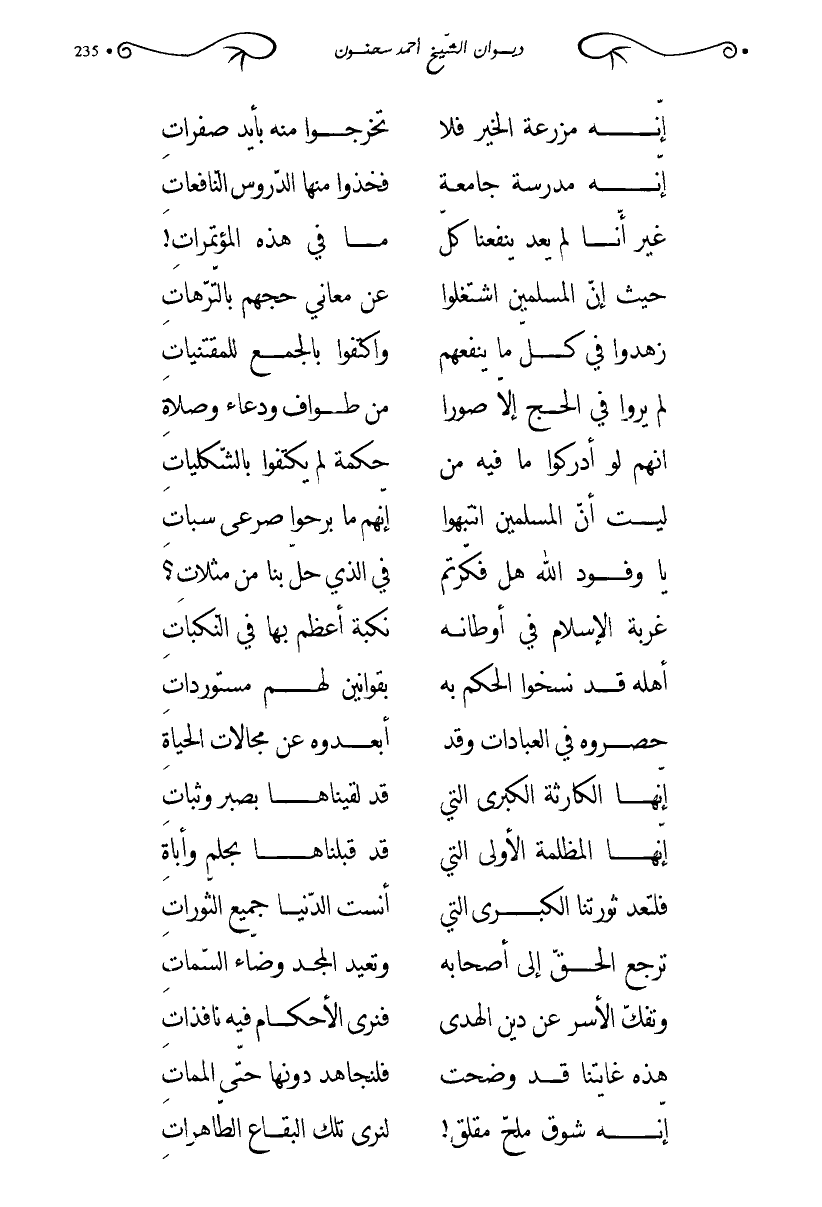 ديـوان الشّيخ أحمد سحنـون • 235
إنّـــه مزرعة الخير فلا تخرجـوا منه بأيد صفراتِ
إنّـــه مدرسة جامعـة فخذوا منها الدّروس النّافعاتِ
غير أنّـا لم يعد ينفعنا كلّ مـا في هذه المؤتمراتِ!
حيث إنّ المسلمين اشتغلوا عن معاني حجهم بالتّرّهاتِ
زهدوا في كـل ما ينفعهم واكتفوا بالجمـع للمقتنياتِ
لم يروا في الحـج إلاّ صورا من طـواف ودعاء وصلاةِ
انهم لو أدركوا ما فيه من حكمة لم يكتفوا بالشّكلياتِ
ليـت أنّ المسلمين انتبهوا إنّهم ما برحوا صرعى سباتِ
يا وفـود الله هل فكّرتم في الذي حلّ بنا من مثلاتِ؟
غربة الإسلام في أوطانـه نكبة أعظم بها في النّكباتِ
أهله قـد نسخوا الحكم به بقوانين لهـم مستورداتِ
حصـروه في العبادات وقد أبعـدوه عن مجالات الحياةِ
إنّهـا الكارثة الكبرى التي قد لقيناهـا بصبر وثباتِ
إنّهـا المظلمة الأولى التي قد قبلناهـا بحلم وأباةِ
فلتعد ثورتنا الكبـرى التي أنست الدّنيـا جميع الثّوراتِ
ترجع الحـقّ إلى أصحابه وتعيد المجـد وضاء السّماتِ
وتفكّ الأسر عن دين الهدى فنرى الأحكـام فيه نافذاتِ
هذه غايتنا قـد وضحت فلنجاهد دونها حتّى المماتِ
إنّـــه شوق ملحّ مقلق! لنرى تلك البقـاع الطّاهراتِ